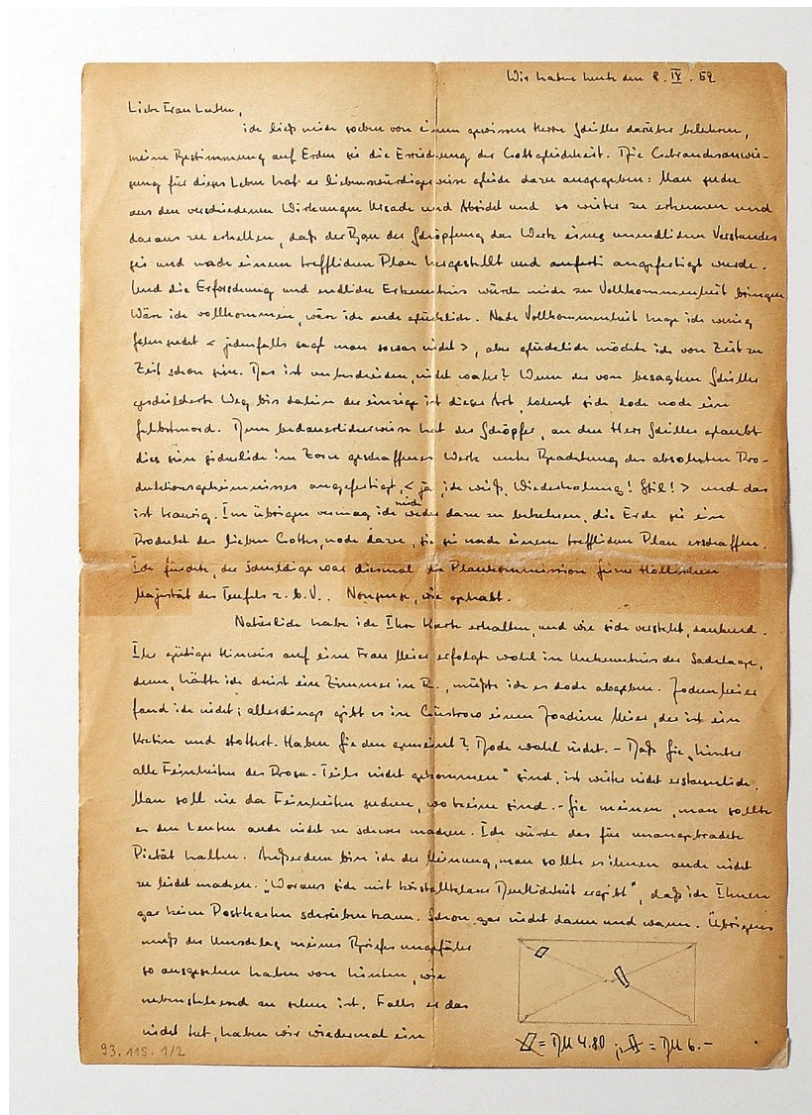 Wir haben heute den 8. IV. 52
Liebe Frau Luthe,
ich ließ mich soeben von einem gewissen Herrn Schiller darüber belehren,
meine Bestimmung auf Erden sei die Erringung der Gottgleichheit. Die Gebrauchsanwei-
sung für dieses Leben hat er liebenswürdigerweise gleich dazu ausgegeben: Man suche
aus den verschiedenen Wirkungen Ursache und Absicht und so weiter zu erkennen und
daraus zu erhellen, daß der Bau der Schöpfung das Werk eines unendlichen Verstandes
sei und nach einem trefflichen Plan hergestellt und angefertigt wurde.
Und die Erforschung und endliche Erkenntnis würde mich zu Vollkommenheit bringen
Wär ich vollkommen, wär ich auch glücklich. Nach Vollkommenheit hege ich wenig
Sehnsucht < jedenfalls sagt man sowas nicht >, aber glücklich möchte ich von Zeit zu
Zeit schon sein. Das ist unbescheiden, nicht wahr? Wenn der von besagtem Schiller
geschilderte Weg bis dahin der einzige ist dieser Art, lohnt sich doch noch ein
Selbstmord. Denn bedauerlicherweise hat der Schöpfer, an den Herr Schiller glaubt
dies sein sicherlich im Zorn geschaffenes Werk unter Beachtung des absoluten Pro-
duktionsgeheimnisses angefertigt, < ja, ich weiß, Wiederholung! Stil! > und das
ist traurig. Im übrigen vermag ich mich weder dazu zu bekehren, die Erde sei ein
Produkt des lieben Gottes, noch dazu, sie sei nach einem trefflichen Plan erschaffen.
Ich fürchte, der Schuldige war diesmal die Plankommission seiner Höllischen
Majestät des Teufels z. b. V.. Nonsense, wie gehabt.
Natürlich habe ich Ihre Karte erhalten, und wie sich versteht, dankend.
Ihr gütiger Hinweis auf eine Frau Meier erfolgt wohl in Unkenntnis der Sachlage,
denn, hätte ich dort ein Zimmer in R., müßte ich es doch abgeben. Jochen Meier
fand ich nicht; allerdings gibt es in Güstrow einen Joachim Meier, der ist ein
Kretin und stottert. Haben Sie den gemeint? Doch wohl nicht. – Daß Sie „hinter
alle Feinheiten des Prosa-Teils nicht gekommen“ sind, ist weiter nicht erstaunlich.
Man soll nie da Feinheiten suchen, wo keine sind. – Sie meinen, man sollte
es den Leuten auch nicht zu schwer machen. Ich würde das für unangebrachte
Pietät halten. Außerdem bin ich der Meinung, man sollte es ihnen auch nicht
zu leicht machen. „Woraus sich mit kristallklarer Deutlichkeit ergibt“, daß ich Ihnen
gar keine Postkarten schreiben kann. Schon gar nicht dann und wann. Übrigens
muß der Umschlag meines Briefes ungefähr
so ausgesehen haben von hinten, wie
nebenstehend zu sehen ist. Falls er das
nicht tut, haben wir wiedermal ein
= DM 4.80 ; = DM 6.–
93.115.1/2